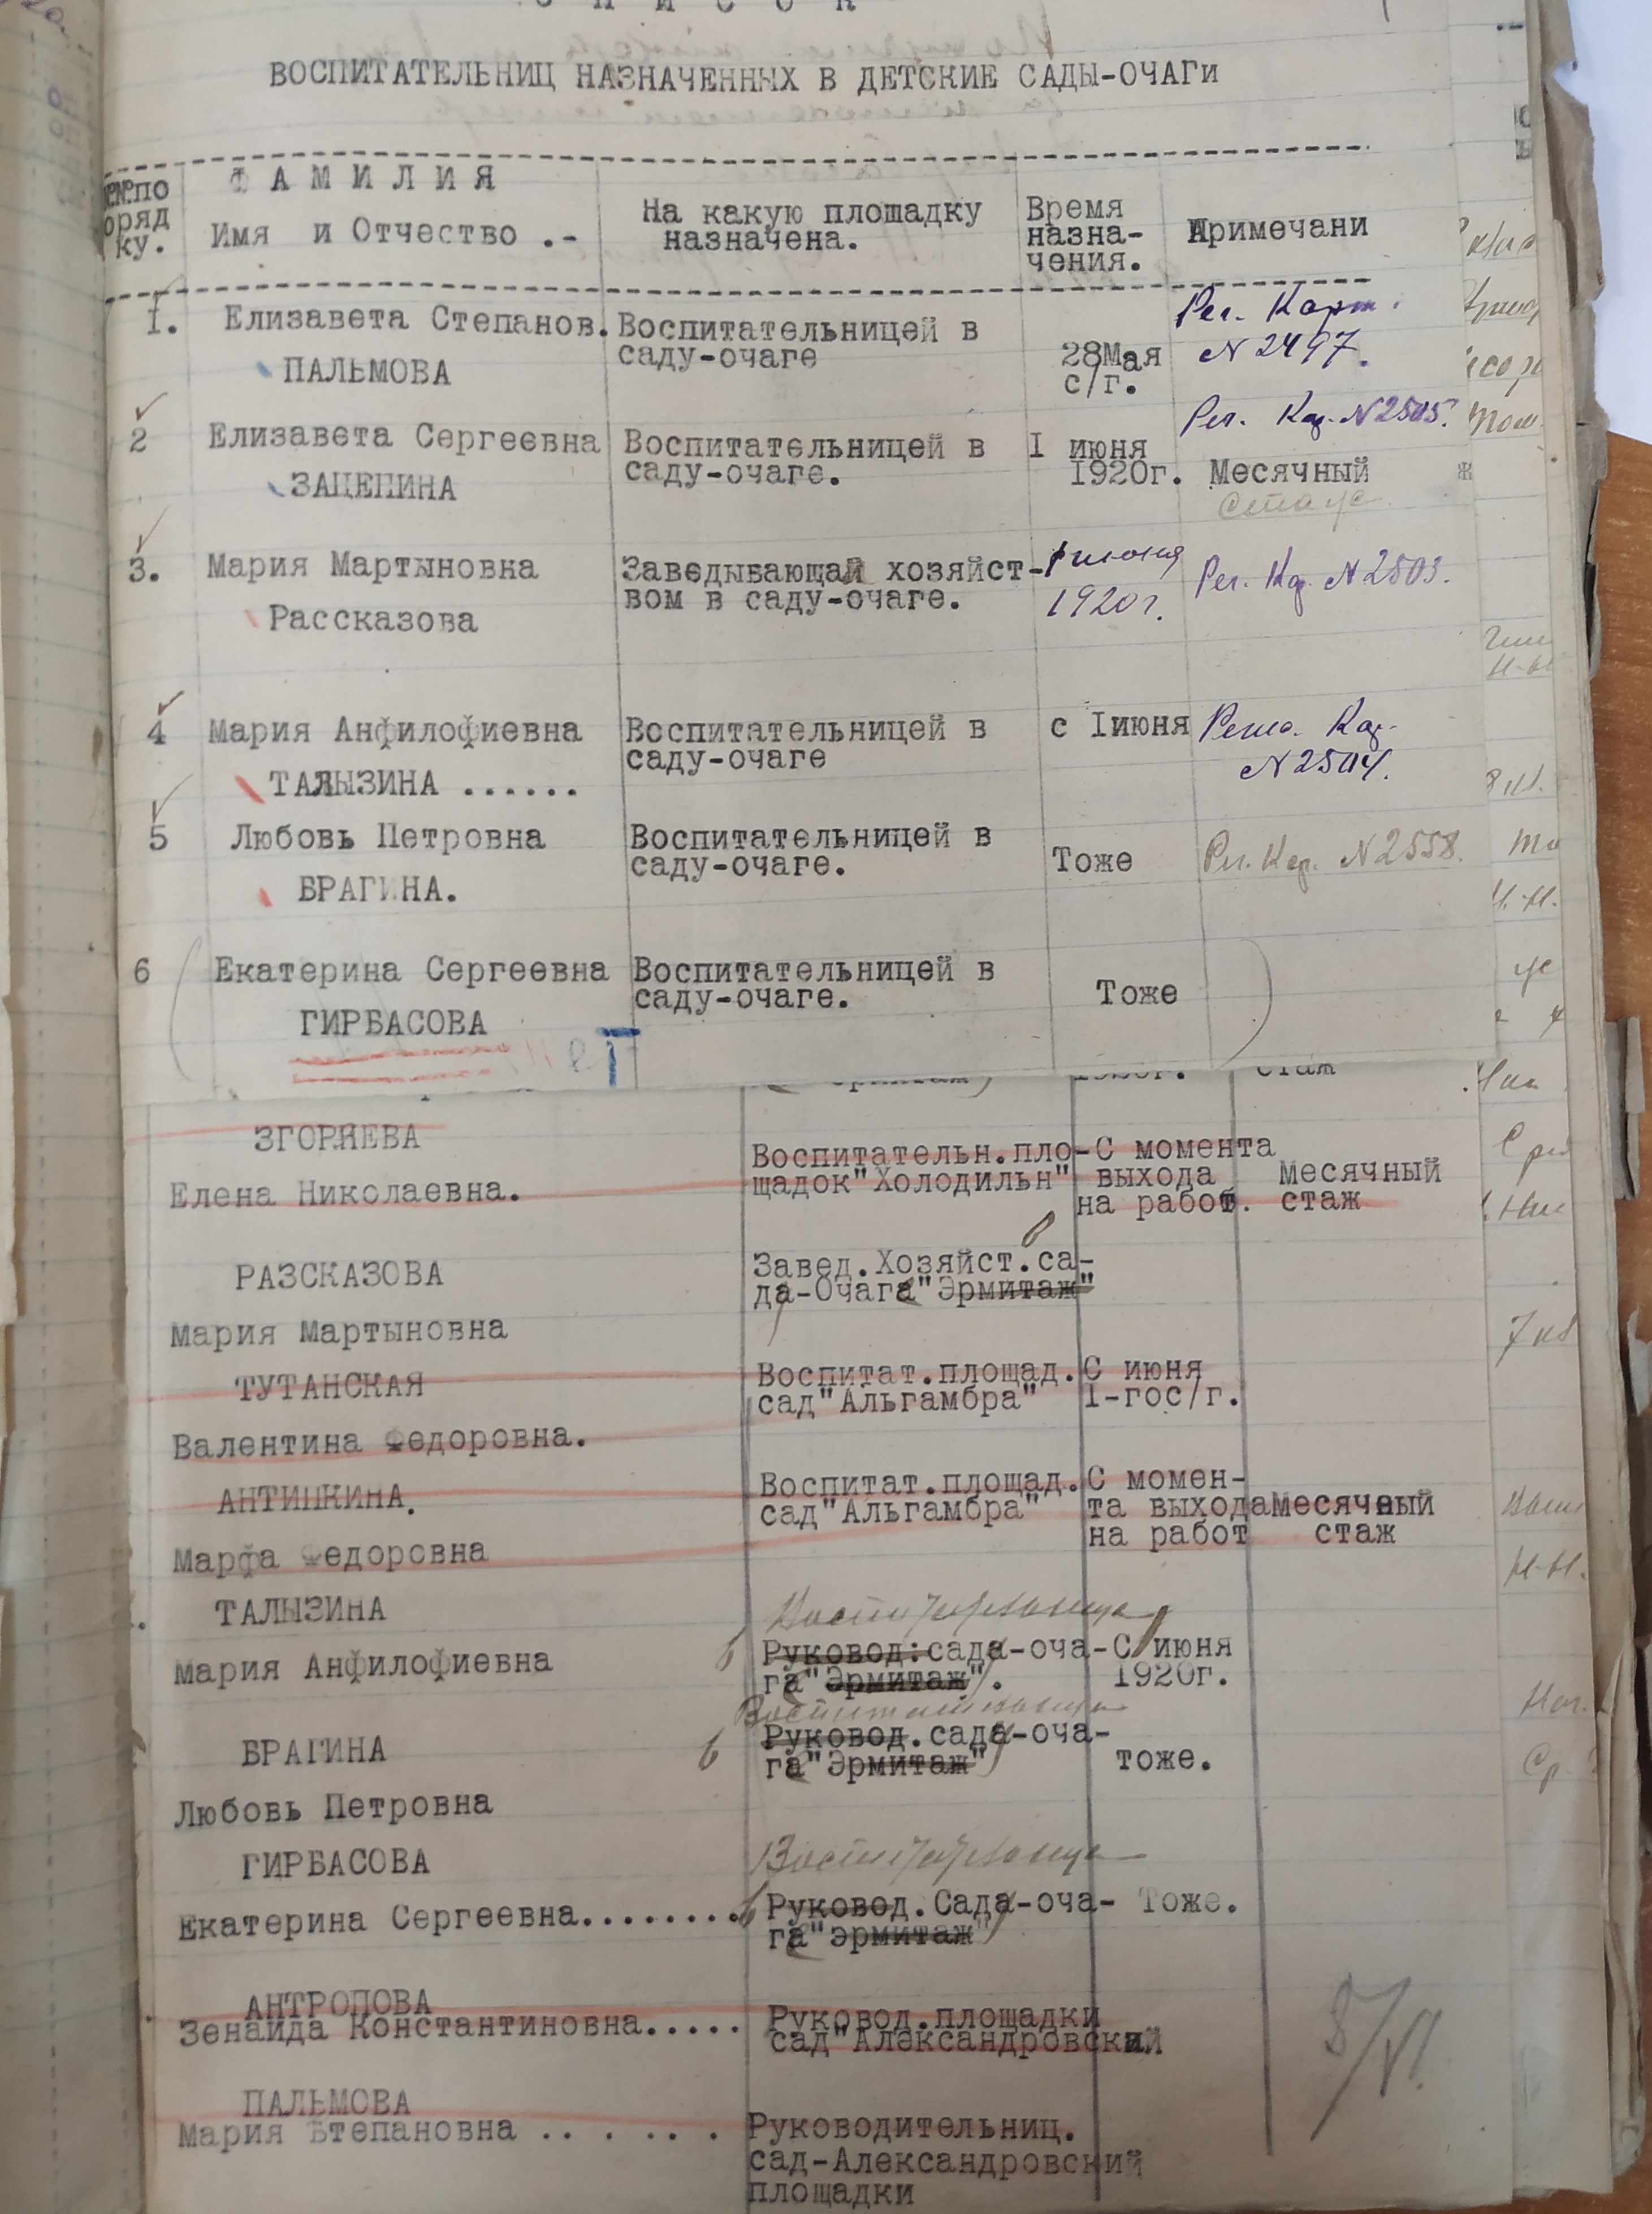 С П И С О К
ВОСПИТАТЕЛЬНИЦ НАЗНАЧЕННЫХ В ДЕТСКИЕ САДЫ-ОЧАГИ
№№ по
оряд
ку.
ФАМИЛИЯ
Имя и Отчество .-
На какую площадку
назначена.
Время
назна-
чения.
Примечани
I. Елизавета Степанов. Воспитательницей в
саду-очаге
ПАЛЬМОВА
28Мая
с/г.
Рег. Карт.
N 2497.
2 Елизавета Сергеевна Воспитательницей в
саду-очаге.
ЗАЦЕПИНА
I июня
1920г.
Рег. Кар. N 2505.
Месячный
стаж
3. Мария Мартыновна Заведывающай хозяйст-
вом в саду-очаге.
Рассказова
1 июня
1920г.
Рег. Кар. N 2503.
4 Мария Анфилофиевна Воспитательницей в
саду-очаге
ТАЛЫЗИНА ......
с Iиюня
Кар.
N 2504.
5 Любовь Петровна Воспитательницей в
саду-очаге.
БРАГИНА.
Тоже
Рег. Кар. N 2558.
6 Екатерина Сергеевна Воспитательницей в
саду-очаге.
ГИРБАСОВА
Тоже
стаж
ЗГОРЯЕВА
Елена Николаевна.
Воспитательн.пло-
щадок"Холодильн"
С момента
выхода
на работ.
Месячный
стаж
РАЗСКАЗОВА
Мария Мартыновна
Завед.Хозяйст.са-
да-Очага"Эрмитаж"
ТУТАНСКАЯ
Валентина Федоровна.
Воспитат.площад.
сад"Альгамбра"
С июня
I-гос/г.
АНТИПКИНА.
Марфа Федоровна
Воспитат.площад.
сад"Альгамбра"
С момен-
та выхода
на работ
Месячный
стаж
ТАЛЫЗИНА
Мария Анфилофиевна
Воспитательница
Руковод:сада-оча-
га"Эрмитаж".
С июня
1920г.
БРАГИНА
Любовь Петровна
Воспитательница
Руковод.сада-оча-
га"Эрмитаж"
тоже.
ГИРБАСОВА
Екатерина Сергеевна........
Воспитательница
Руковод.Сада-оча-
га"эрмитаж"
Тоже.
АНТРОПОВА
Зенаида Константиновна.....
Руковод.площадки
сад"Александровский
8/VI
ПАЛЬМОВА
Мария Степановна . . . . . .
Руководительниц.
сад-Александровский
площадки